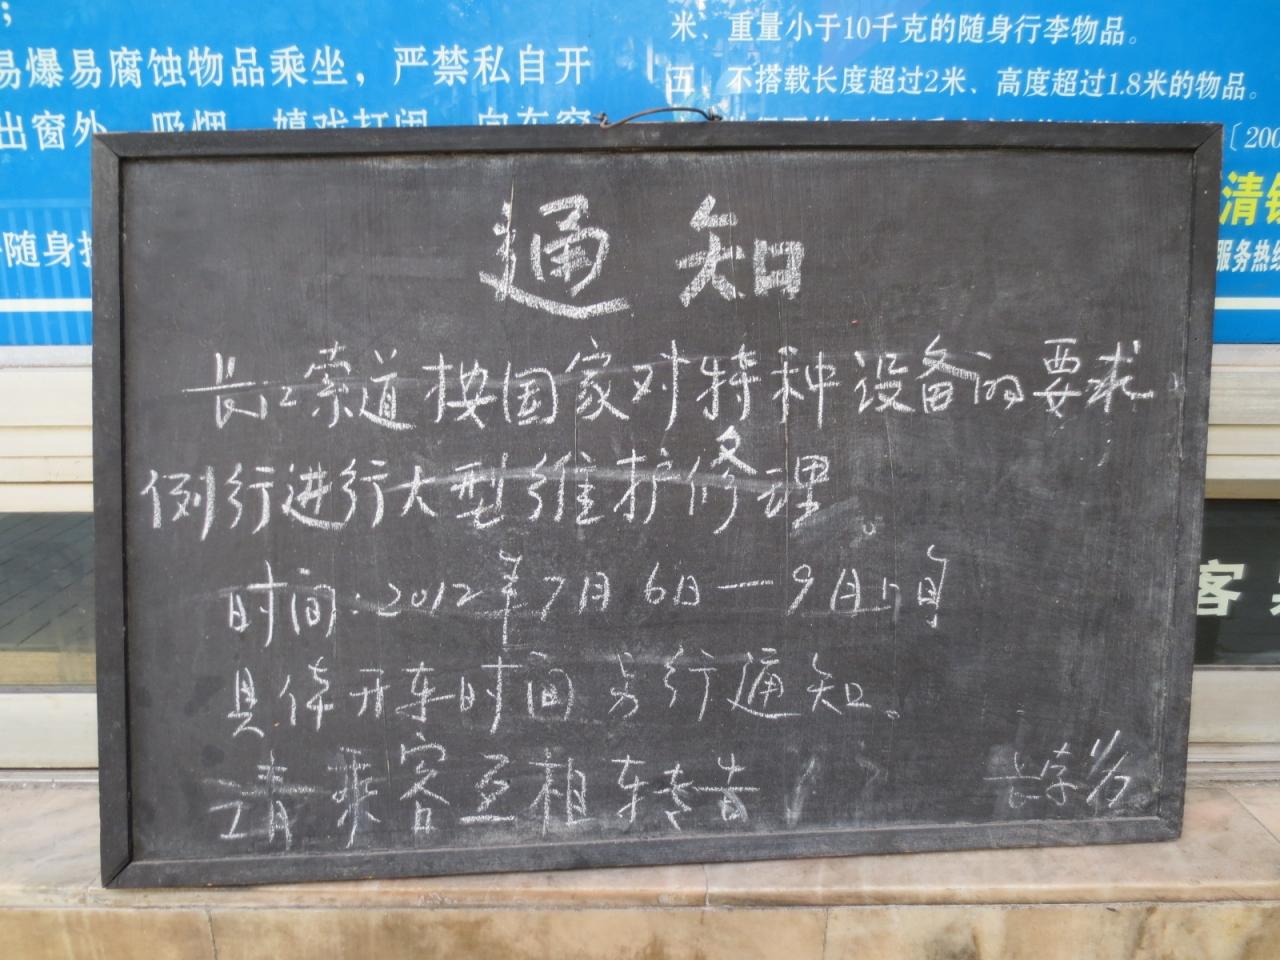 ；
易爆易腐蚀物品乘坐，严禁私自开
出窗外、吸烟、嬉戏打闹、向车窗
随身
米、重量小于10千克的随身行李物品。
五、不搭载长度超过2米、高度超过1.8米的物品。
〔200
清
服务热线
客
通知
长江索道按国家对特种设备的要求
例行进行大型维护修理。
时间：2012年7月6日—9月
具体开车时间另行通知。
请乘客互相转告
长索